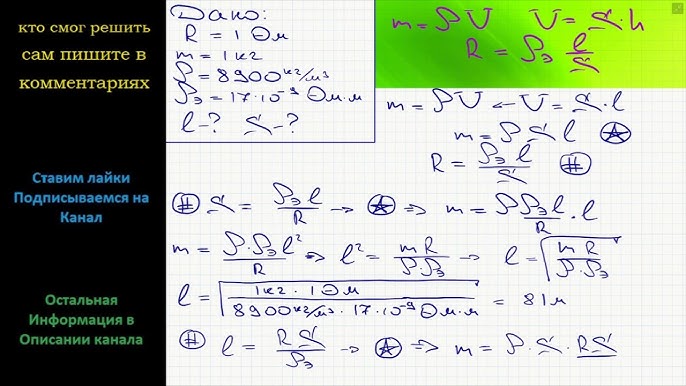 кто смог решить
сам пишите в
комментариях
Ставим лайки
Подписываемся на
Канал
Остальная
Информация в
Описании канала
Дано:
R = 1 Ом
m = 1 кг
ρ = 8900 кг/м³
ρэ = 17·10⁻⁹ Ом·м
l - ? S - ?
m = ρV V = S·h
R = ρэ l/S
m = ρV ← V = S·l
m = ρSl ⍟
R = ρэl/S (#)
(#) S = ρэl/R → ⍟ ⇒ m = ρ ρэl/R · l
m = ρ·ρэl²/R ⇒ l² = mR/ρ·ρэ ⇒ l = √(mR/ρ·ρэ)
l = √(1кг·1Ом/8900кг/м³·17·10⁻⁹Ом·м) = 81м
(#) l = RS/ρэ → ⍟ ⇒ m = ρ·S·RS